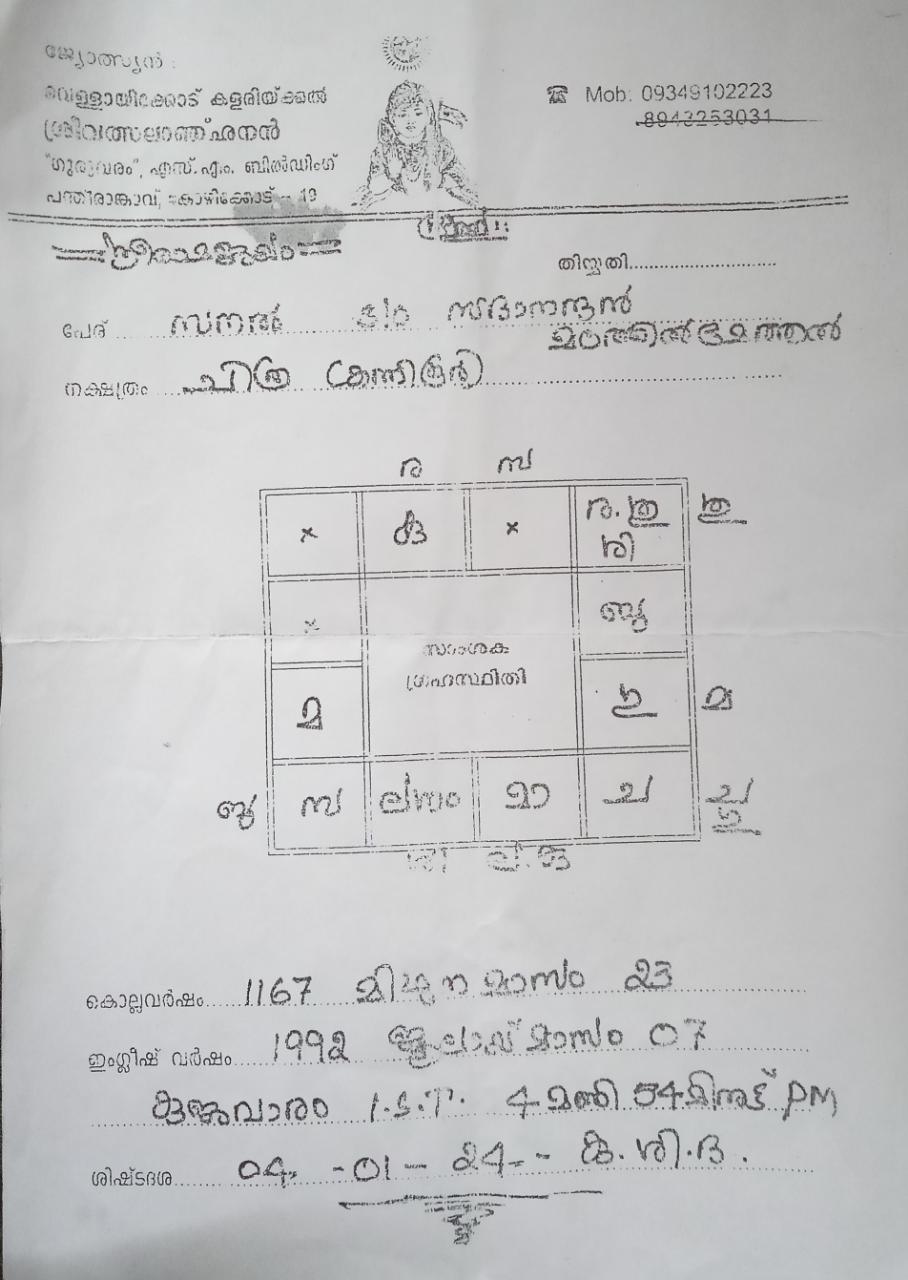 ജ്യോത്സ്യൻ :
വെള്ളായിക്കോട് കളരിയ്ക്കൽ
ശ്രീവത്സലാഞ്ഛനൻ
"ഗുരുവരം", എസ്.എം. ബിൽഡിംഗ്
പന്തീരാങ്കാവ്, കോഴിക്കോട് - 19
☎ Mob: 09349102223
8943253031
ശ്രീരാമജയം
തിയ്യതി
പേര് സനൽ S/o സദാനന്ദൻ
നക്ഷത്രം ചിത്ര (കന്നിക്കൂർ)
ര സ
× കു × ര.
ശി
× ബു
സാംശക
ഗ്രഹസ്ഥിതി
മ മ
ബു സ ല്ഗ്നം മാ ച ച
കൊല്ലവർഷം 1167 മിഥുന മാസം 23
ഇംഗ്ലീഷ് വർഷം 1992 ജൂലായ് മാസം 07
കുജവാരം I.S.T. 4 മണി 54 മിനുട്ട് PM
ശിഷ്ടദശ 04 - 01 - 24 - കു. ശി. ദ.